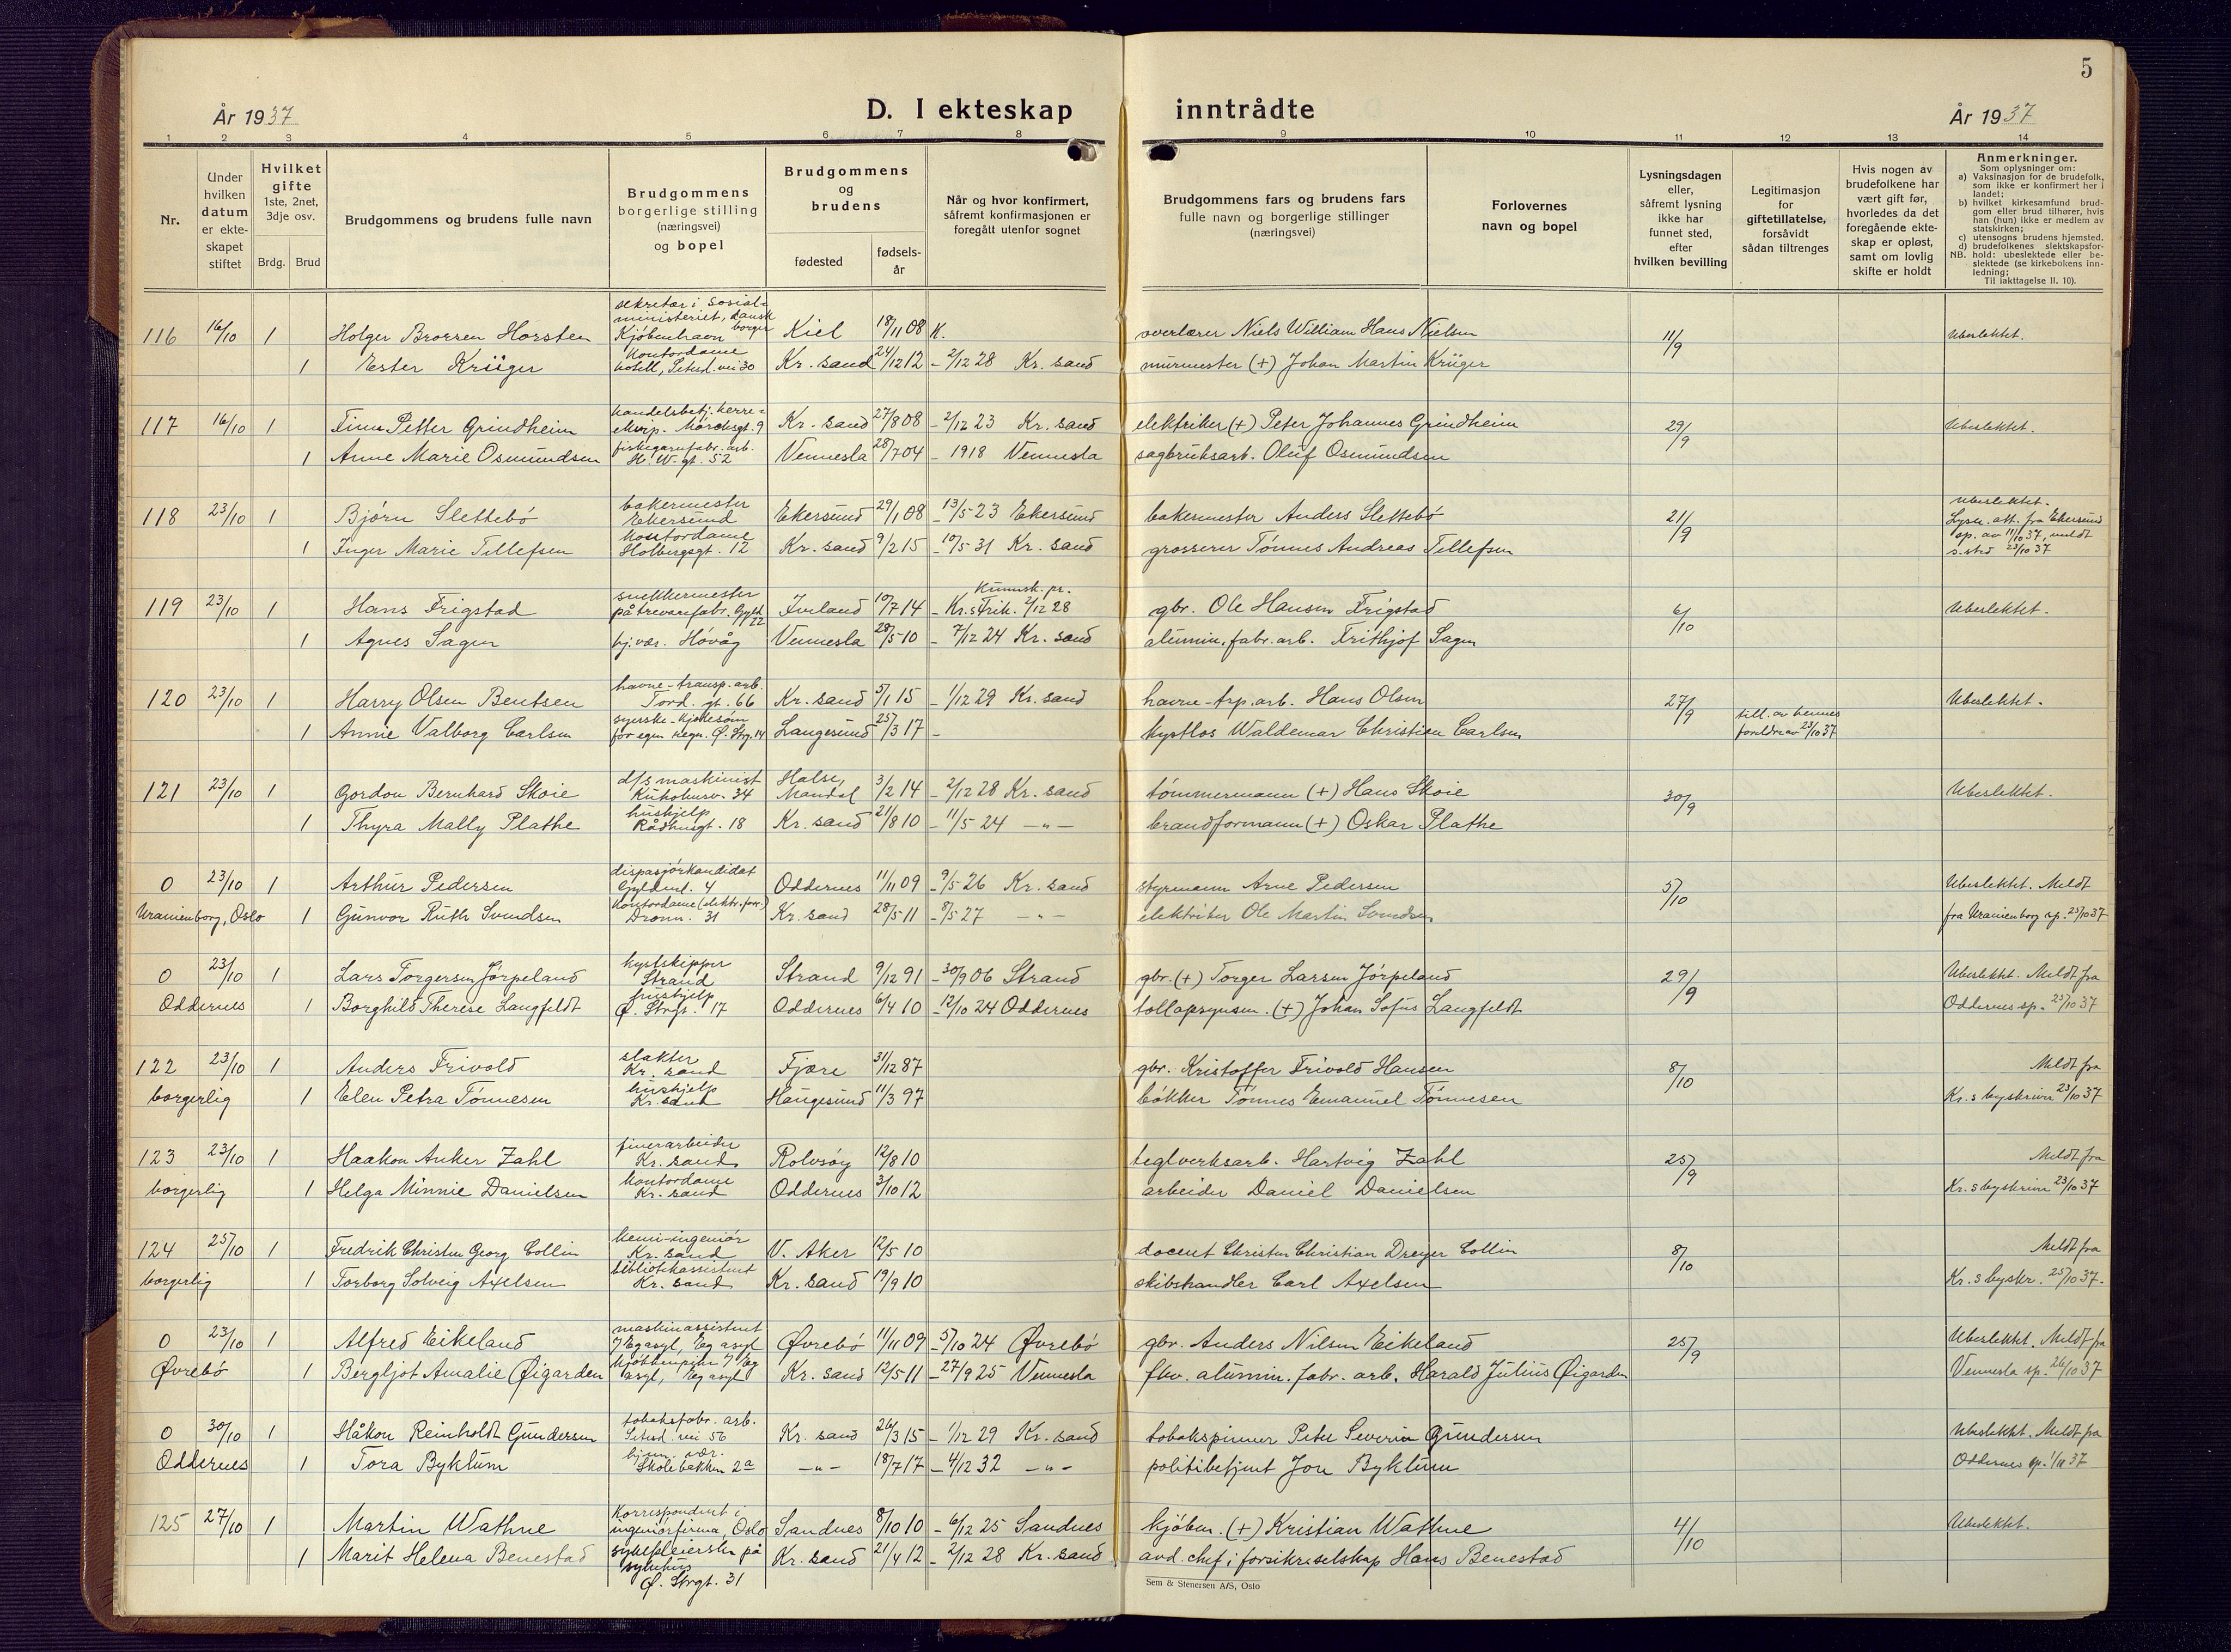 5
År 1937
D. I ekteskap inntrådte
År 1937
1 2 3 4 5 6 7 8 9 10 11 12 13 14
Nr.
Under hvilken datum er ekte- skapet stiftet
Hvilket gifte 1ste, 2net, 3dje osv.
Brdg. Brud
Brudgommens og brudens fulle navn
Brudgommens borgerlige stilling (næringsvei) og bopel
Brudgommens og brudens
fødested
fødsels- år
Når og hvor konfirmert, såfremt konfirmasjonen er foregått utenfor sognet
Brudgommens fars og brudens fars fulle navn og borgerlige stillinger (næringsvei)
Forlovernes navn og bopel
Lysningsdagen eller, såfremt lysning ikke har funnet sted, efter hvilken bevilling
Legitimasjon for giftetillatelse, forsåvidt sådan tiltrenges
Hvis nogen av brudefolkene har vært gift før, hvorledes da det foregående ekte- skap er opløst, samt om lovlig skifte er holdt
Anmerkninger.
Som oplysninger om:
a) Vaksinasjon for de brudefolk, som ikke er konfirmert her i landet;
b) hvilket kirkesamfund brud- gom eller brud tilhører, hvis han (hun) ikke er medlem av statskirken;
c) utensogns brudens hjemsted.
d) brudefolkenes slektskapsfor- hold: ubeslektede eller be- slektede (se kirkebokens inn- ledning;
NB.
Til iakttagelse II. 10).
116 16/10 1 Holger Brorsen Horsten sekretær i Sosial- ministeriet, dansk borger Kjöbenhavn Kiel 18/11 08 K. overlærer Niels William Hans Nielsen 11/9 Ubeslektet.
1 Ester Krüger Kontordame hotell, Setesd. vei 30 Kr. sand 24/12 12 - 2/12 28 Kr. sand murmester (+) Johan Martin Krüger
117 16/10 1 Finn Petter Grindheim handelsbetj. herre- ekvip. Märchsgt. 9 Kr. sand 27/8 08 - 2/12 23 Kr. sand elektriker (+) Peter Johannes Grindheim 29/9 Ubeslektet.
1 Anne Marie Osmundsen fiskegarnfabr. arb. H. W. gt. 52 Vennesla 28/7 04 - 1918 Vennesla sagbruksarb. Oluf Osmundsen
118 23/10 1 Bjørn Slettebö bakermester Ekersund Ekersund 29/1 08 - 13/5 23 Ekersund bakermester Anders Slettebö 21/9 Ubeslektet. Lysn. att. fra Ekersund sp. av 11/10 37, meldt s.sted 23/10 37
1 Inger Marie Tellefsen Kontordame Holbergsgt. 12 Kr. sand 9/2 15 - 10/5 31 Kr. sand grosserer Tönnes Andreas Tellefsen
119 23/10 1 Hans Frigstad snekkermester på trevarefabr. Gyld. 22 Iveland 10/7 14 - Kr.s Frik. 2/12 28 gbr. Ole Hansen Frigstad 6/10 Ubeslektet.
1 Agnes Sagen hj. vær. Hövåg Vennesla 28/5 10 - 7/12 24 Kr. sand alumin. fabr. arb. Frithjof Sagen
120 23/10 1 Harry Olsen Bentsen havne-transp. arb. Tord. gt. 66 Kr. sand 5/1 15 - 1/12 29 Kr. sand havne-trp. arb. Hans Olsen 27/9 till. av hennes foreldre av 23/10 37 Ubeslektet.
1 Annie Valborg Carlsen syerske - kjolesöm for egen regn. Ø. Strg. 14 Langesund 25/3 17 - kystlos Waldemar Christian Carlsen
121 23/10 1 Gordon Bernhard Skoie d/s maskinist Kuholmsv. 34 Halse, Mandal 3/2 14 - 2/12 28 Kr. sand tömmermann (+) Hans Skoie 30/9 Ubeslektet.
1 Thyra Mally Plathe hushjelp Rådhusgt. 18 Kr. sand 21/8 10 - 11/5 24 -"- brandformann (+) Oskar Plathe
0 23/10 1 Arthur Pedersen dispasjörkandidat Gyldenl. 4 Oddernes 11/11 09 - 9/5 26 Kr. sand styrmann Arne Pedersen 5/10 Ubeslektet. Meldt
Uranienborg, Oslo 1 Gunvor Ruth Svendsen Kontordame (elektr. forr.) Dronn. 31 Kr. sand 28/5 11 - 8/5 27 -"- elektriker Ole Martin Svendsen fra Uranienborg sp. 25/10 37
0 23/10 1 Lars Torgersen Jörpeland kystskipper Strand Strand 9/12 91 - 30/9 06 Strand gbr. (+) Torger Larsen Jörpeland 29/9 Ubeslektet. Meldt fra
Oddernes 1 Borghild Therese Langfeldt hushjelp Ø. Strgt. 17 Oddernes 6/4 10 - 12/10 24 Oddernes tollopsynsm. (+) Johan Sofus Langfeldt Oddernes sp. 25/10 37
122 23/10 1 Anders Frivold slakter Kr. sand Fjære 31/12 87 gbr. Kristoffer Frivold Hansen 8/10 Meldt fra
borgerlig 1 Elen Petra Tönnesen hushjelp Kr. sand Haugesund 11/3 97 bökker Tönnes Emanuel Tönnesen Kr.s byskriver 23/10 37
123 23/10 1 Haakon Anker Zahl finerarbeider Kr. sand Rolvsöy 12/8 10 teglverksarb. Hartvig Zahl 25/9 Meldt fra
borgerlig 1 Helga Minnie Danielsen kontordame Kr. sand Oddernes 3/10 12 arbeider Daniel Danielsen Kr.s byskriver 23/10 37
124 25/10 1 Fredrik Christen Georg Collin kemi-ingeniör Kr. sand V. Aker 12/5 10 docent Christen Christian Dreyer Collin 8/10 Meldt fra
borgerlig 1 Torborg Solveig Axelsen bibliotekassistent Kr. sand Kr. sand 19/9 10 skibshandler Carl Axelsen Kr.s byskr. 25/10 37.
0 23/10 1 Alfred Eikeland maskinassistent Eg asyl Øvrebö 11/11 09 - 5/10 24 Øvrebö gbr. Anders Nilsen Eikeland 25/9 Ubeslektet. Meldt fra
Øvrebö 1 Bergljot Amalie Øigarden asyl, Eg asyl Kr. sand 12/5 11 - 27/9 25 Vennesla fhv. alumin. fabr. arb. Harald Julius Øigarden Vennesla sp. 26/10 37
0 30/10 1 Håkon Reinholdt Gundersen tobaksfabr. arb. Setesd. vei 56 Kr. sand 26/3 15 - 1/12 29 Kr. sand tobakspinner Peter Severin Gundersen Ubeslektet. Meldt fra
Oddernes 1 Tora Byklum hjem. vær. Skolebakken 2a -"- 18/7 17 - 4/12 32 -"- politibetjent Jon Byklum Oddernes sp. 1/11 37
125 27/10 1 Martin Wathne Korrespondent i ingeniörfirma, Oslo Sandnes 8/10 10 - 6/12 25 Sandnes kjöbm. (+) Kristian Wathne 4/10 Ubeslektet.
1 Marit Helena Benestad sykepleierske på sykehus Ø. Strgt. 31 Kr. sand 21/4 12 - 2/12 28 Kr. sand avd. chef i forsikr.selskap Hans Benestad
Sem & Stenersen A/S, Oslo